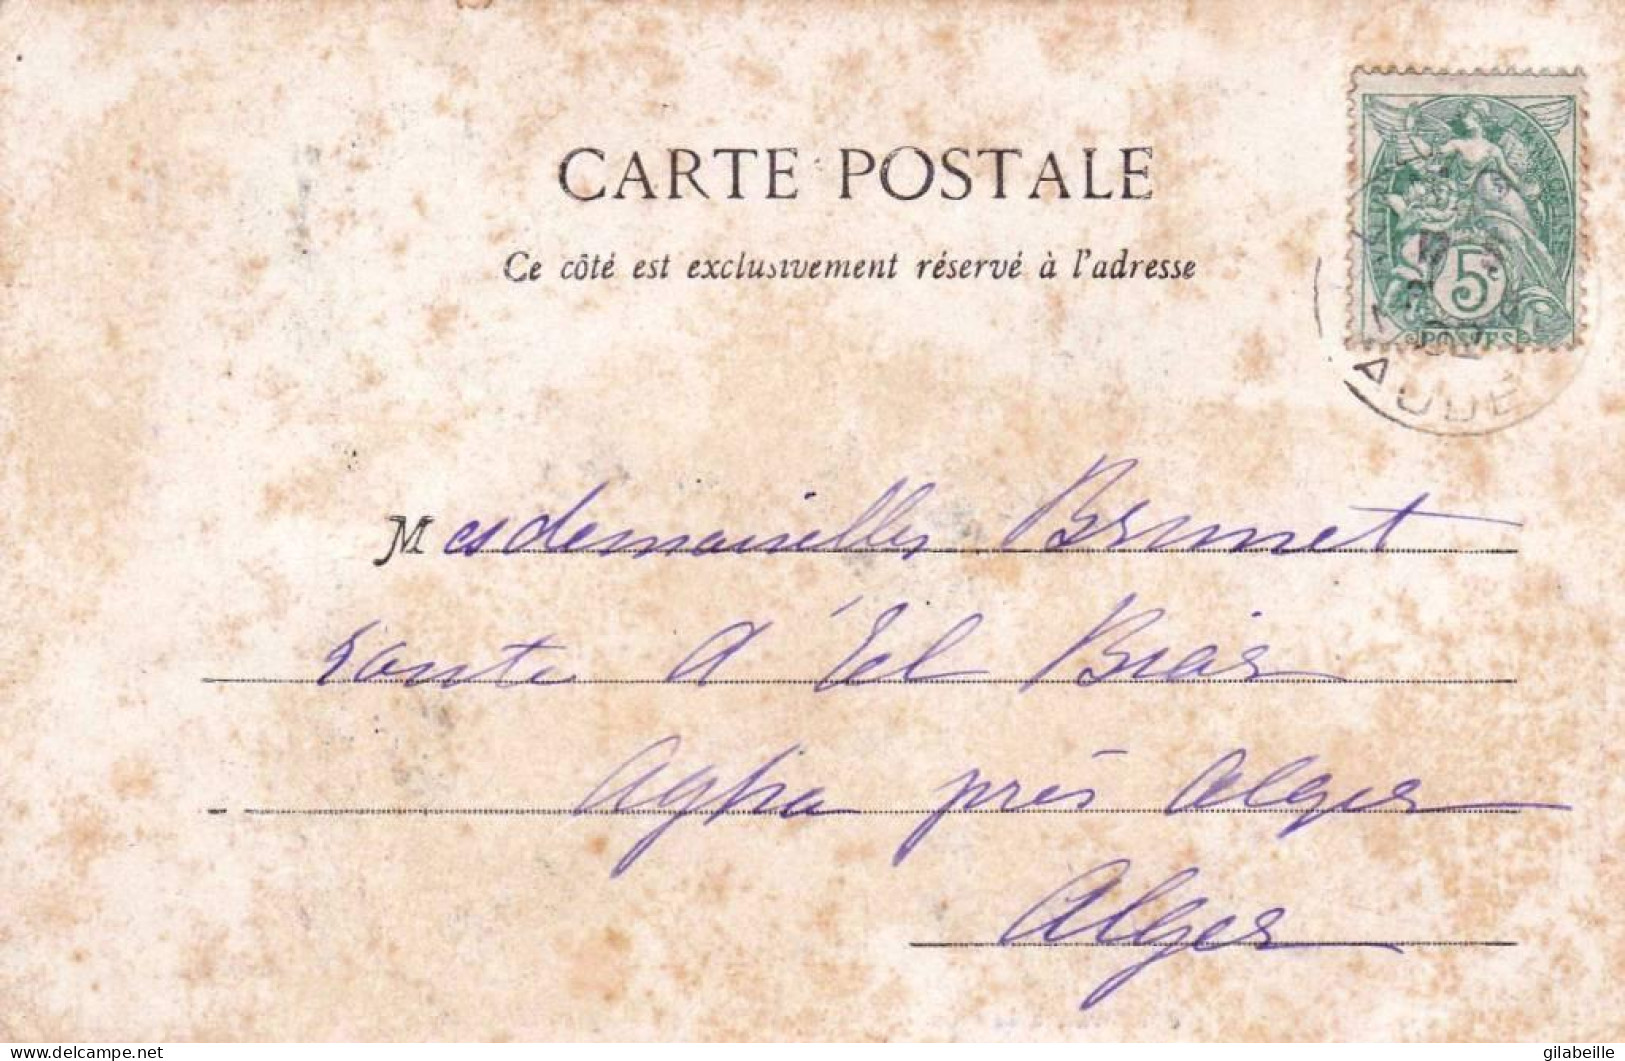 CARTE POSTALE
Ce côté est exclusivement réservé à l'adresse
5
POSTES
AUDE
Mesdemoiselles Brunet
route d'El Biar
Agha près Alger
Alger
https://www.delcampe.net
gilabeille